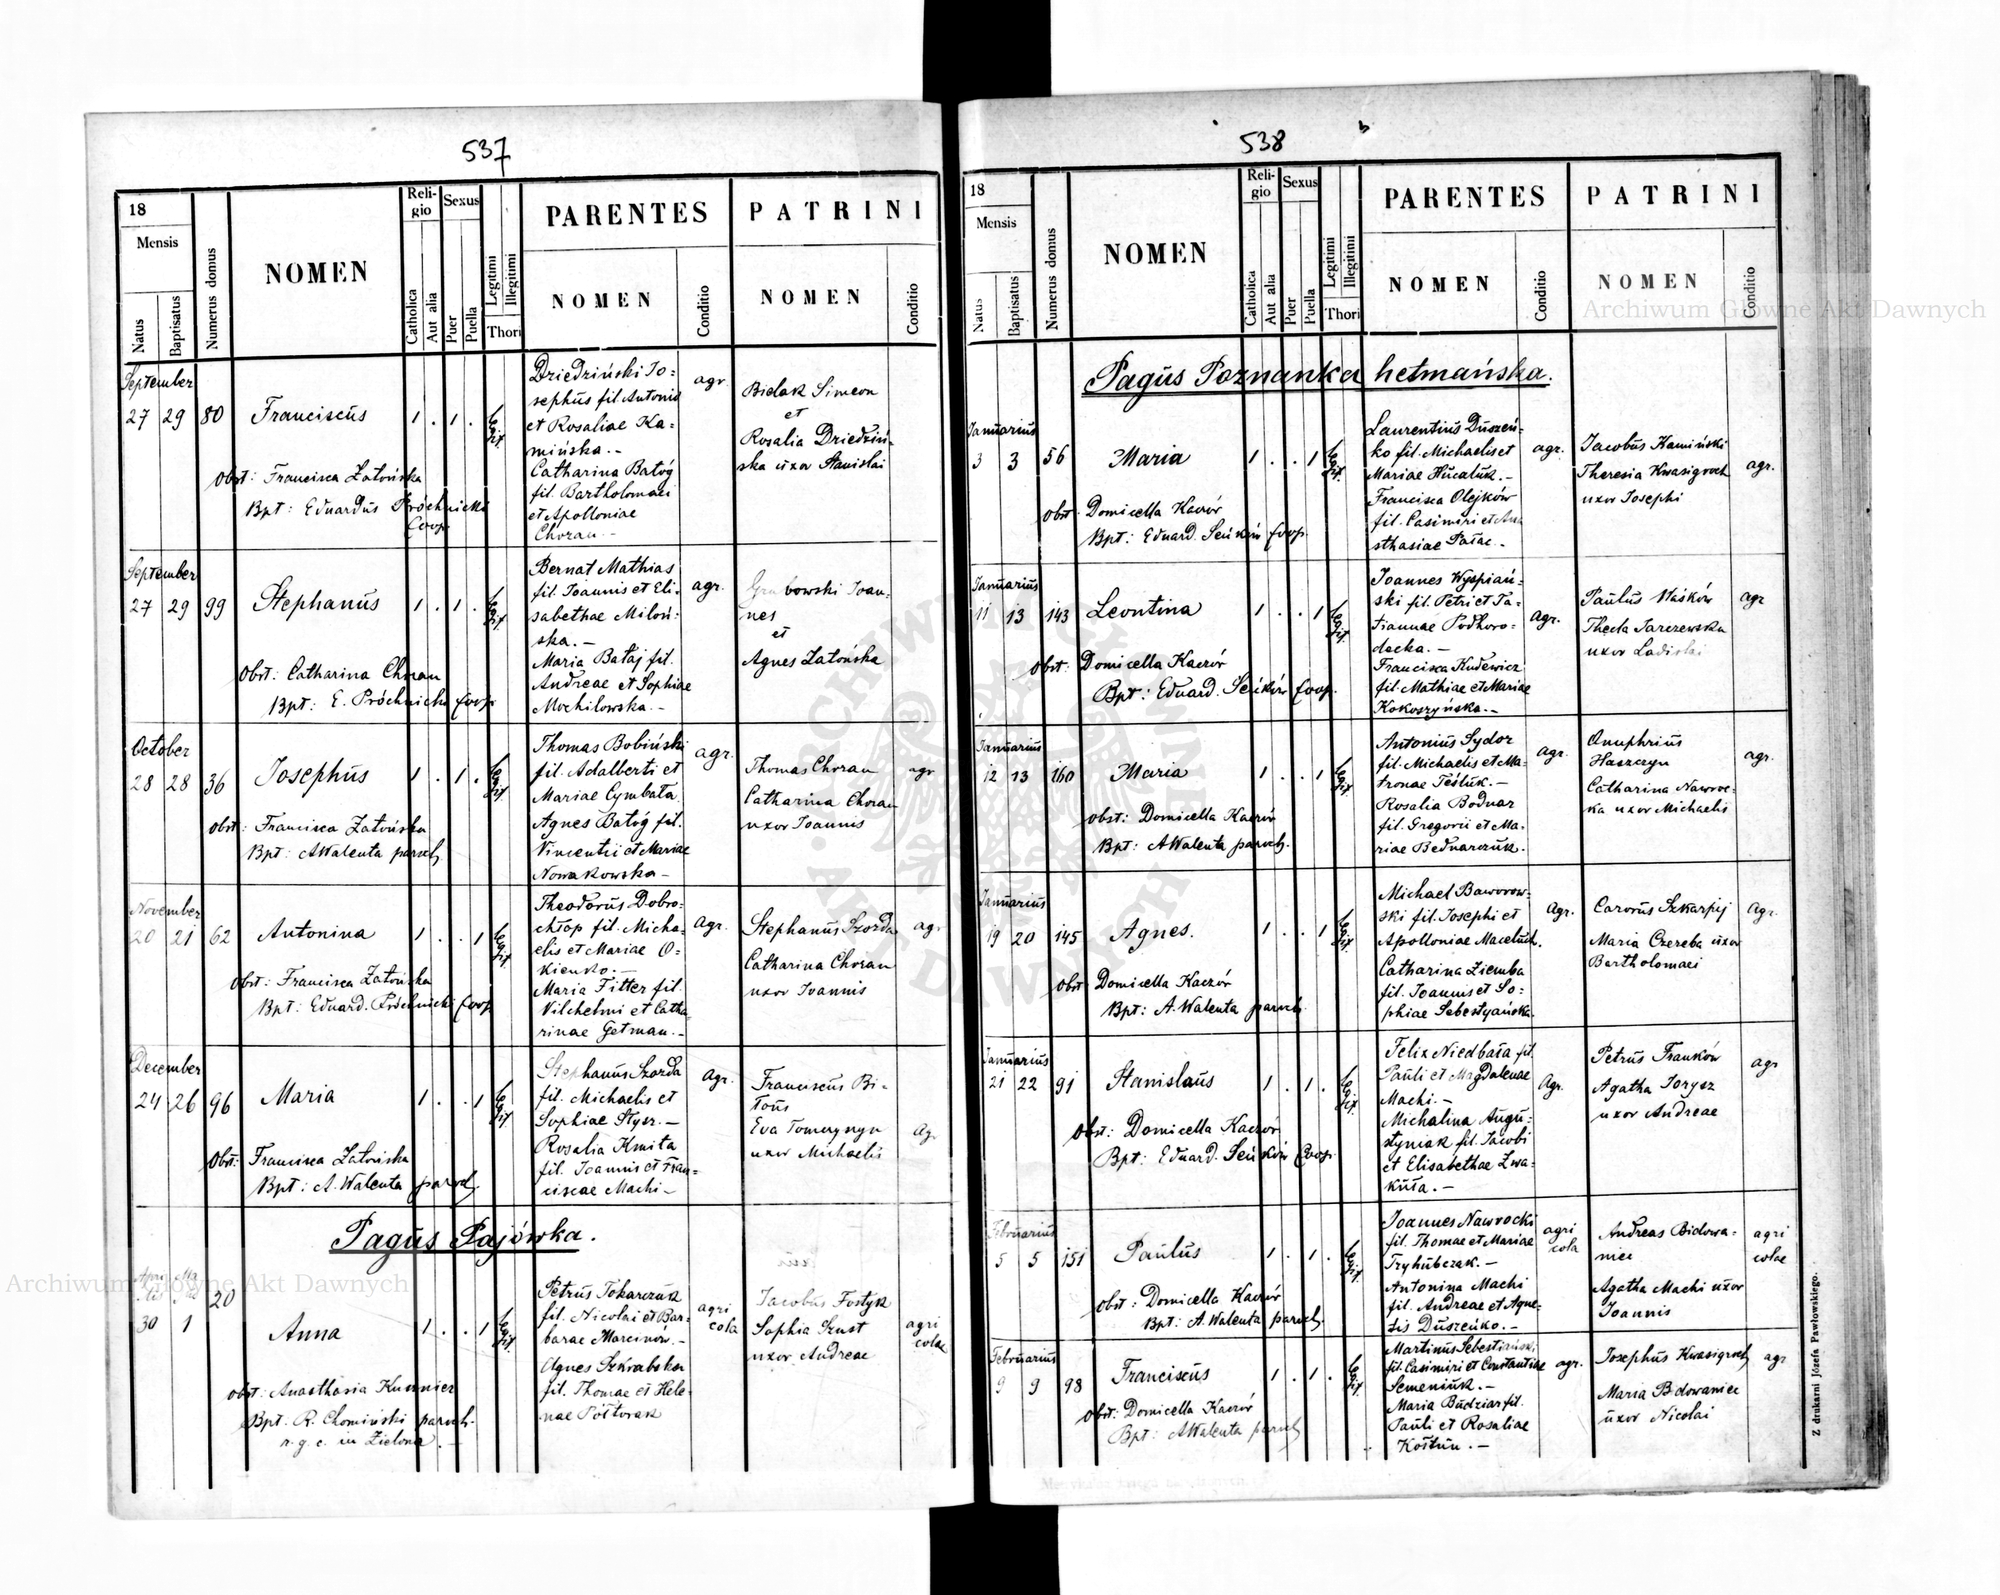 537
18
Mensis
Natus
Baptisatus
Numerus domus
NOMEN
Reli-
gio
Catholica
Aut alia
Sexus
Puer
Puella
Legitimi
Illegitimi
Thori
PARENTES
NOMEN
Conditio
PATRINI
NOMEN
Conditio
September
27 29 80 Franciscus 1 . 1 . legit.
Obst: Francisca Zatońska
Bpt: Eduardus Próchnicki
Coop.
Dziedziński Jo=
sephus fil. Antonii
et Rosaliae Ka=
mińska.-
Catharina Batóg
fil. Bartholomaei
et Apolloniae
Choran -
agr.
Bielak Simeon
et
Rosalia Dziedziń-
ska uxor Stanislai
September
27 29 99 Stephanus 1 . 1 . legit.
Obst: Catharina Choran
Bpt: E. Próchnicki Coop.
Bernat Mathias
fil. Joannis et Eli-
sabethae Miloń=
ska.-
Maria Bataj fil.
Andreae et Sophiae
Mochilowska.-
agr.
Grabowski Joan-
nes
et
Agnes Zatońska
October
28 28 36 Josephus 1 . 1 . legit.
Obst: Francisca Zatońska
Bpt: A Walenta paroch.
Thomas Bobiński
fil. Adalberti et
Mariae Cymbała
Agnes Batóg fil.
Vincentii et Mariae
Nowakowska -
agr.
Thomas Choran
Catharina Choran
uxor Joannis
agr
November
20 21 62 Antonina 1 . . 1 legit.
Obst: Francisca Zatońska
Bpt: Eduard. Próchnicki Coop
Theodorus Dobro-
chłop fil. Micha-
elis et Mariae O-
kienko.-
Maria Fitter fil.
Vilchelmi et Catha-
rinae Getman.-
agr.
Stephanus Szorda
Catharina Choran
uxor Joannis
agr
December
24 26 96 Maria 1 . . 1 legit.
Obst: Francisca Zatońska
Bpt: A. Walenta paroch.
Stephanus Szorda
fil. Michaelis et
Sophiae Stysz.-
Rosalia Kmita
fil. Joannis et Fran-
ciscae Machi-
agr.
Franciscus Bi-
łous
uxor Michaelis
Agr
Pagus Pajówka.
Aprilis
30 1 20 Anna 1 . . 1 legit.
Obst: Anasthasia Kusznier
Bpt. R. Chomiński paroch.
r. g. c. in Zielona.-
Petrus Tokarczuk
fil. Nicolai et Bar-
barae Marcinów.-
Agnes Szkrabska
fil. Thomae et Hele-
nae Półtorak
agri
cola
Jacobus Fostyk
Sophia Szust
uxor Andreae
agri
colae
538
18
Mensis
Natus
Baptisatus
Numerus domus
NOMEN
Reli-
gio
Catholica
Aut alia
Sexus
Puer
Puella
Legitimi
Illegitimi
Thori
PARENTES
NOMEN
Conditio
PATRINI
NOMEN
Conditio
Pagus Poznanka hetmańska.
Januarius
3 3 56 Maria 1 . . 1 legit.
Obst: Domicella Kaczór
Bpt: Eduard. Seńków Coop.
Laurentius Duszeń-
ko fil. Michaelis et
Mariae Hucaluk.-
Francisca Olejków
fil. Casimiri et Ana
sthasiae Pałac.-
agr.
Jacobus Kamiński
Theresia Kwasigroch
uxor Josephi
agr.
Januarius
11 13 143 Leontina 1 . . 1 legit.
Obst: Domicella Kaczór
Bpt: Eduard. Seńków Coop.
Joannes Wyspiań-
ski fil. Petri et Ta-
tiannae Podhoro-
decka.-
Francisca Kudewicz
fil. Mathiae et Mariae
Kokoszyńska.-
Agr.
Paulus Waśków
Thecla Tarczewska
uxor Ladislai
agr
Januarius
12 13 160 Maria 1 . . 1 legit.
Obst: Domicella Kaczór
Bpt: A Walenta paroch.
Antonius Sydor
fil. Michaelis et Ma-
tronae Tesluk.-
Rosalia Bodnar
fil. Gregorii et Ma-
riae Bednarczuk.
Agr.
Onuphrius
Haszczyn
Catharina Nawroc-
ka uxor Michaelis
agr.
Januarius
19 20 145 Agnes. 1 . . 1 legit.
Obst: Domicella Kaczór
Bpt: A. Walenta paroch.
Michael Baworow-
ski fil. Josephi et
Apolloniae Maceluch.
Catharina Ziemba
fil. Joannis et So-
phiae Sebestyańska.
Agr.
Carolus Szkarpij
Maria Czereba uxor
Bartholomaei
Agr.
Januarius
21 22 91 Stanislaus 1 . 1 . legit.
Obst: Domicella Kaczór
Bpt: Eduard. Seńków Coop.
Felix Niedbała fil.
Pauli et Magdalenae
Machi.-
Michalina Augu-
styniak fil. Jacobi
et Elisabethae Zwa-
kuła.-
Agr.
Petrus Franków
Agatha Jorysz
uxor Andreae
agr
Februarius
5 5 151 Paulus 1 . 1 . legit.
Obst: Domicella Kaczór
Bpt: A. Walenta paroch.
Joannes Nawrocki
fil. Thomae et Mariae
Tryhubczak.-
Antonina Machi
fil. Andreae et Agne-
tis Duszeńko.-
agri
cola
Andreas Bidowa-
niec
Agatha Machi uxor
Joannis
agri
colae
Februarius
9 9 98 Franciscus 1 . 1 . legit.
Obst: Domicella Kaczór
Bpt: A Walenta paroch
Martinus Sebestiański
fil. Casimiri et Constantiae
Semeniuk.-
Maria Budziar fil.
Pauli et Rosaliae
Kołtun.-
agr.
Josephus Kwasigroch
Maria Bidowaniec
uxor Nicolai
agr
Z drukarni Józefa Pawłowskiego.
Archiwum Główne Akt Dawnych
Archiwum Główne Akt Dawnych
ARCHIWUM GŁÓWNE AKT DAWNYCH